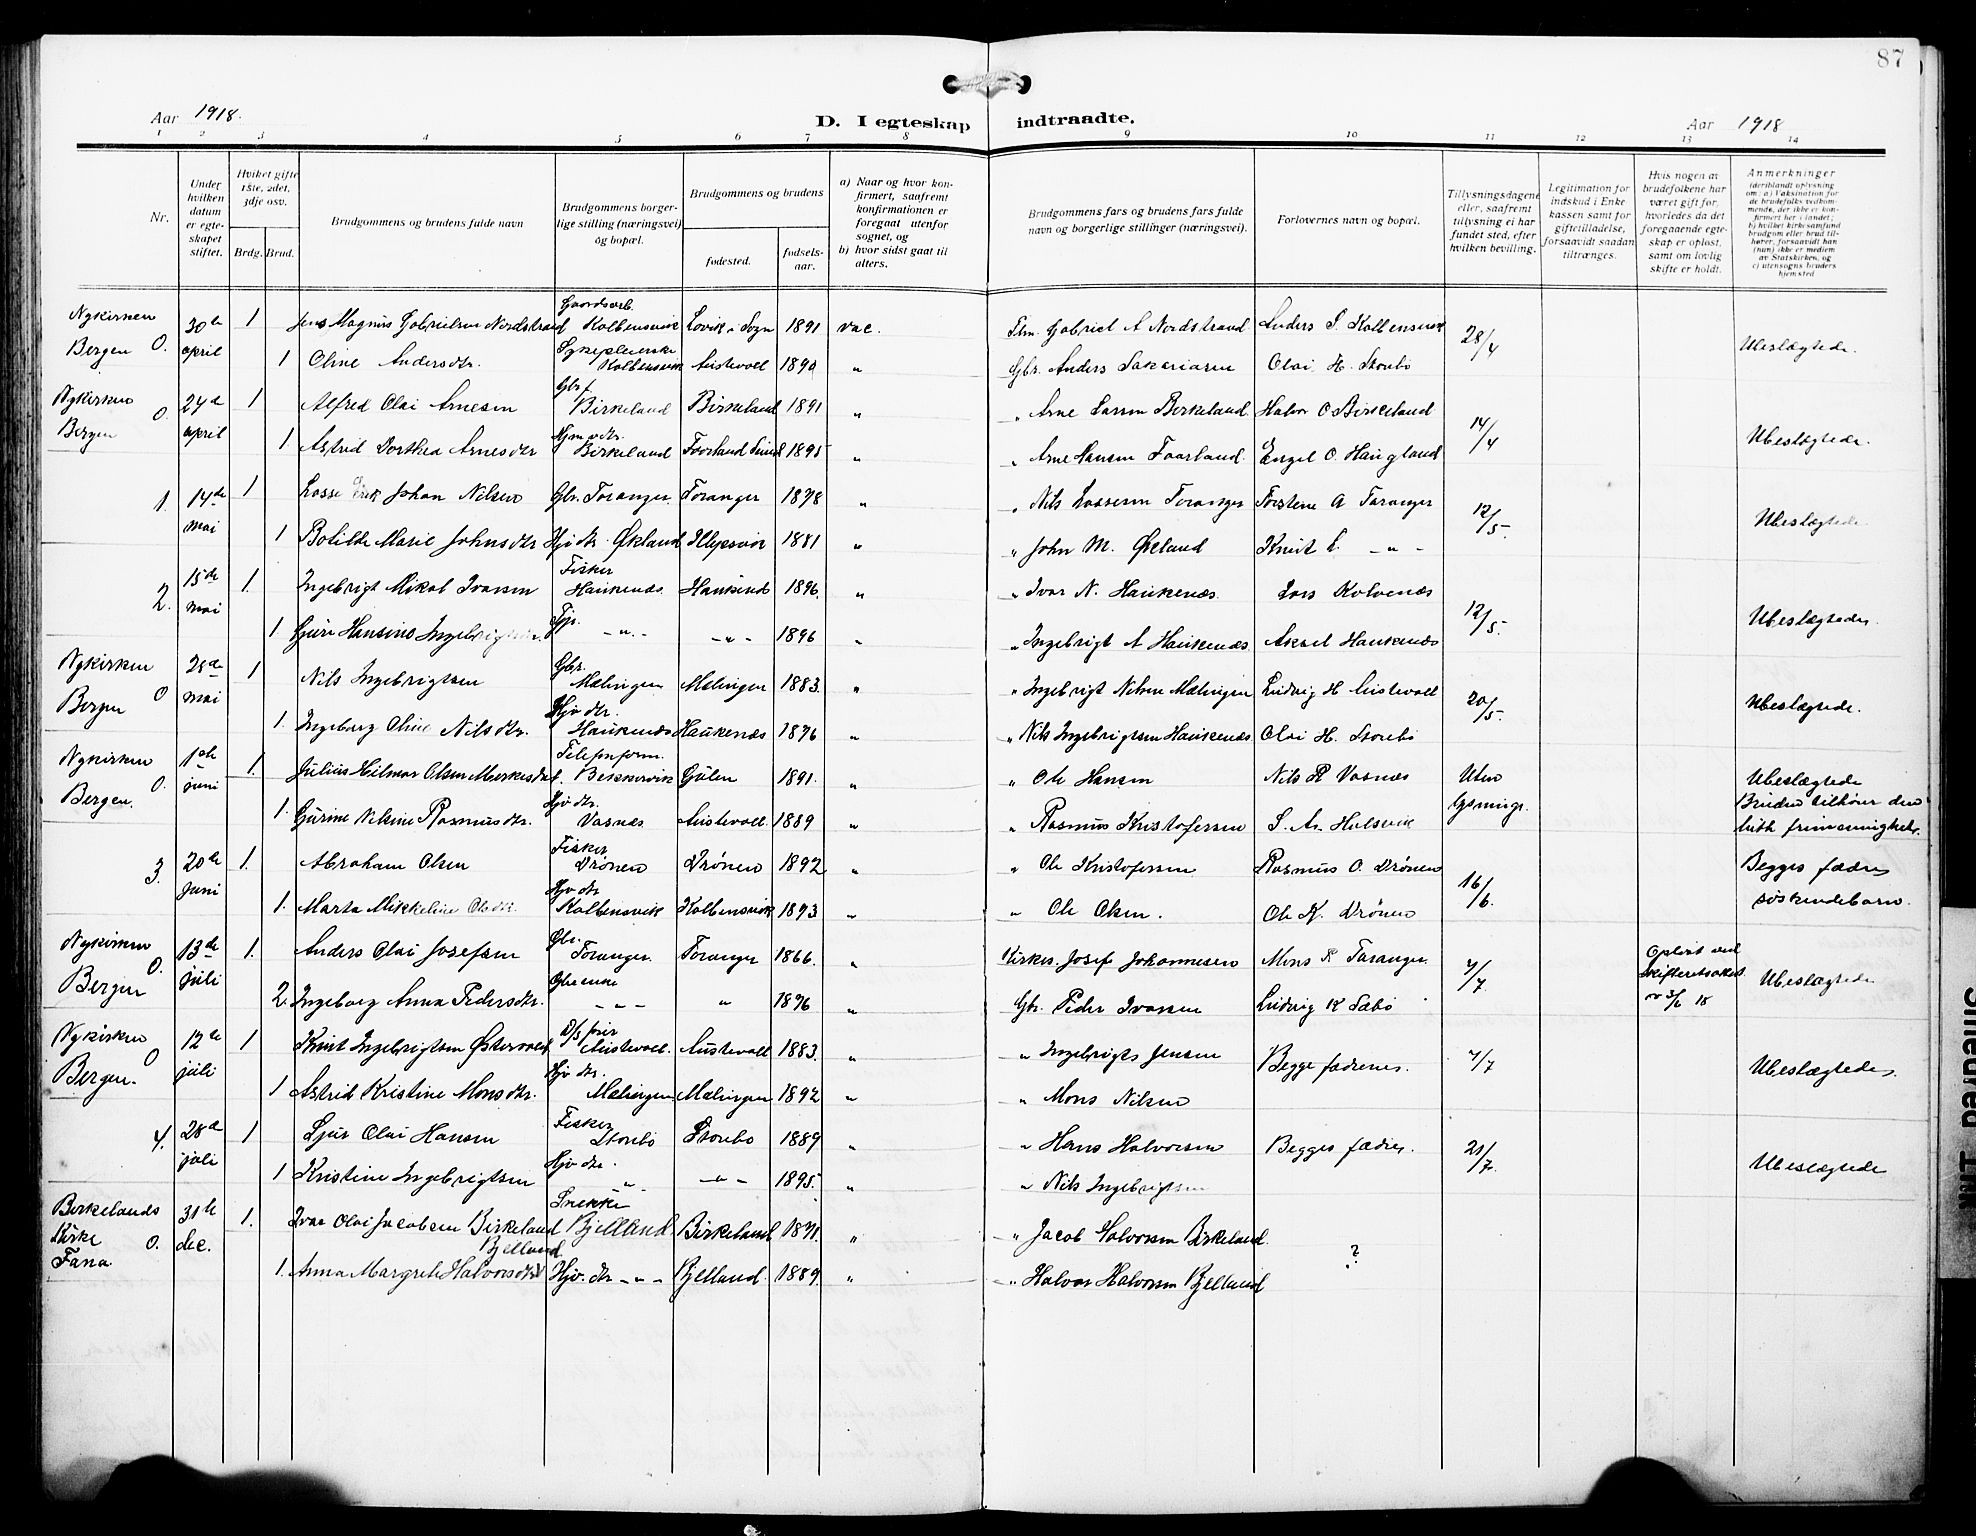 87
Aar 1918.
D. I egteskap indtraadte.
Aar 1918
1 2 3 4 5 6 7 8 9 10 11 12 13 14
Nr.
Under hvilken datum er egteskapet stiftet.
Hvilket gifte 1ste, 2det, 3dje osv.
Brdg. Brud.
Brudgommens og brudens fulde navn
Brudgommens borgerlige stilling (næringsvei) og bopæl.
Brudgommens og brudens
fødested.
fødselsaar.
a) Naar og hvor konfirmert, saafremt konfirmationen er foregaat utenfor sognet, og
b) hvor sidst gaat til alters.
Brudgommens fars og brudens fars fulde navn og borgerlige stillinger (næringsvei).
Forlovernes navn og bopæl.
Tillysningsdagene eller, saafremt tillysning ei har fundet sted, efter hvilken bevilling.
Legitimation for indskud i Enkekassen samt for giftetilladelse, forsaavidt saadan tiltrænges.
Hvis nogen av brudefolkene har været gift før, hvorledes da det foregaaende egteskap er opløst, samt om lovlig skifte er holdt.
Anmerkninger
(deriblandt oplysning om: a) Vaksination for de brudefolks vedkommende, der ikke er konfirmert her i landet; b) hvilket kirkesamfund brudgom eller brud tilhører, forsaavidt han (hun) ikke er medlem av Statskirken, og c) utensogns bruders hjemsted
Nykirken Bergen O. 30te april 1 Jens Magnus Gabrielsen Nordstrand Gaardsarb. Kolbensvik Lovik i Sogn 1891 vac. Gabriel A Nordstrand Anders S. Kolbensvik 28/4 Ubeslægtede.
1 Oline Andersdtr. Sykepleierske Kolbensvik Austevoll 1890 " Gbr. Anders Sakariasen Olai H. Storebø
Nykirken Bergen O. 24de april 1 Alfred Olai Arnesen Gbr. Birkeland Birkeland 1891 " " Arne Larsen Birkeland Halvor O Birkeland 14/4 Ubeslægtede.
1 Astrid Dorthea Arnesdtr Birkeland Faarland 1895 " " Arne Hansen Faarland. Engel O. Haugland
1. 14de mai 1 Lasse Erik Johan Nilsen Gbr. Toranger Toranger 1878 " " Nils Lassesen Toranger Torsteine A Taranger 12/5. Ubeslægtede
1 Botilde Marie Johnsdtr Hjv dtr. Økland 1881 " " John M. Økland Knut L. -"-
2. 15de mai 1. Ingebrigt Mikal Ivarsen Fisker Haukenæs. 1896. " " Ivar N. Haukenæs. Lars Kolvenæs 12/5. Ubeslægtede.
1 Guri Hansine Ingebrigtsdtr. Tjp. -"- -"- 1896 " " Ingebrigt A Haukenæs Aksel Haukenæs
Nykirken Bergen O 28de mai 1 Nils Ingebrigtsen Gbr. Mælingen Mælingen 1883. " " Ingebrigt Nilsen Mælingen Ludvig H Austevoll 20/5. Ubeslægtede.
1. Ingeborg Oline Nilsdtr. Hjv dtr. Haukenæs Haukenæs 1896 " " Nils Ingebrigtsen Haukenæs Olai H. Storebø
Nykirken Bergen. O. 1ste juni 1. Julius Hilmar Olsen Telefonform. Bekkervik Gulen 1891. " " Ole Hansen Nils R Vasnes Uten lysning. Ubeslægtede Bruden tilhører den luth frimenighet.
1. Gurine Nelsine Rasmusdtr. Hjv dtr. Vasnes Austevoll. 1889 " " Rasmus Kristofersen S. A. Halsvik
3. 20de juni 1. Abraham Olsen Fisker Drønen Drønen 1892 " " Ole Kristofersen Rasmus O. Drønen 16/6. Begges fædre søskendebarn.
1. Marta Mikkeline Olsdtr. Hjv dtr Kolbensvik Kolbensvik 1893 " " Ole Olsen. Ole K. Drønen
Nykirken Bergen O. 13de juli 1. Anders Olai Josefsen Gbr. Toranger. Toranger 1866. " Kirkes. Josef Johannesen Mons R Taranger 7/7. Opløst ved skifteretsattest av 3/6 18 Ubeslægtede
2. Ingeborg Anna Pedersdtr. Gbr enke -"- " 1896 " Gbr. Peder Ivarsen Ludvig K Sæbø
Nykirken Bergen. O 12te juli 1 Knut Ingebrigtsen Østervold Austevoll. Austevoll 1883. " " Ingebrigt Jensen Begge fædrenes. 7/7 Ubeslægtede.
1 Astrid Kristine Monsdtr. Hjv dtr. Mælingen Mælingen 1892 " " Mons Nilsen
4. 28de juli 1 Sjur Olai Hansen Fisker Storebø Storebø 1889 " " Hans Halvorsen Begges fædre. 21/7. Ubeslægtede
1 Kristine Ingebrigtsen Hjv dtr. " -"- 1895. " " Nils Ingebrigtsen
Birkelands Kirke Fana O. 31te dec. 1. Ivar Olai Jacobsen Birkeland Snekker Bjelland. Birkeland 1871. " " Jacob Halvorsen Birkeland. ?
1. Anna Margrete Halvorsdtr Bjelland Hjv. dtr -"- Bjelland. 1889. " " Halvor Halvorsen Bjelland